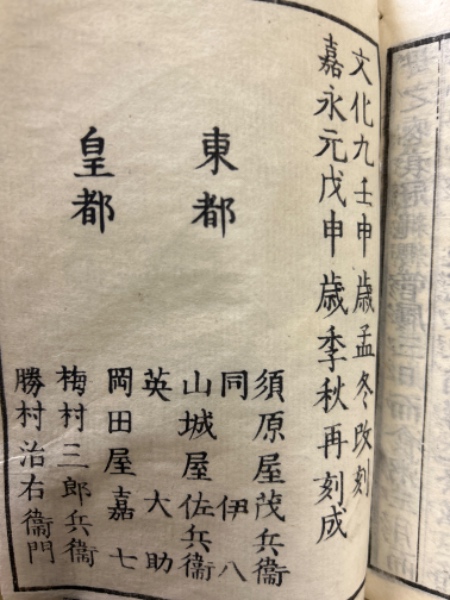 文化九壬申歳孟冬改刻
嘉永元戊申歳季秋再刻成
東都
須原屋茂兵衞
同伊八
山城屋佐兵衞
英大助
岡田屋嘉七
皇都
梅村三郎兵衞
勝村治右衞門